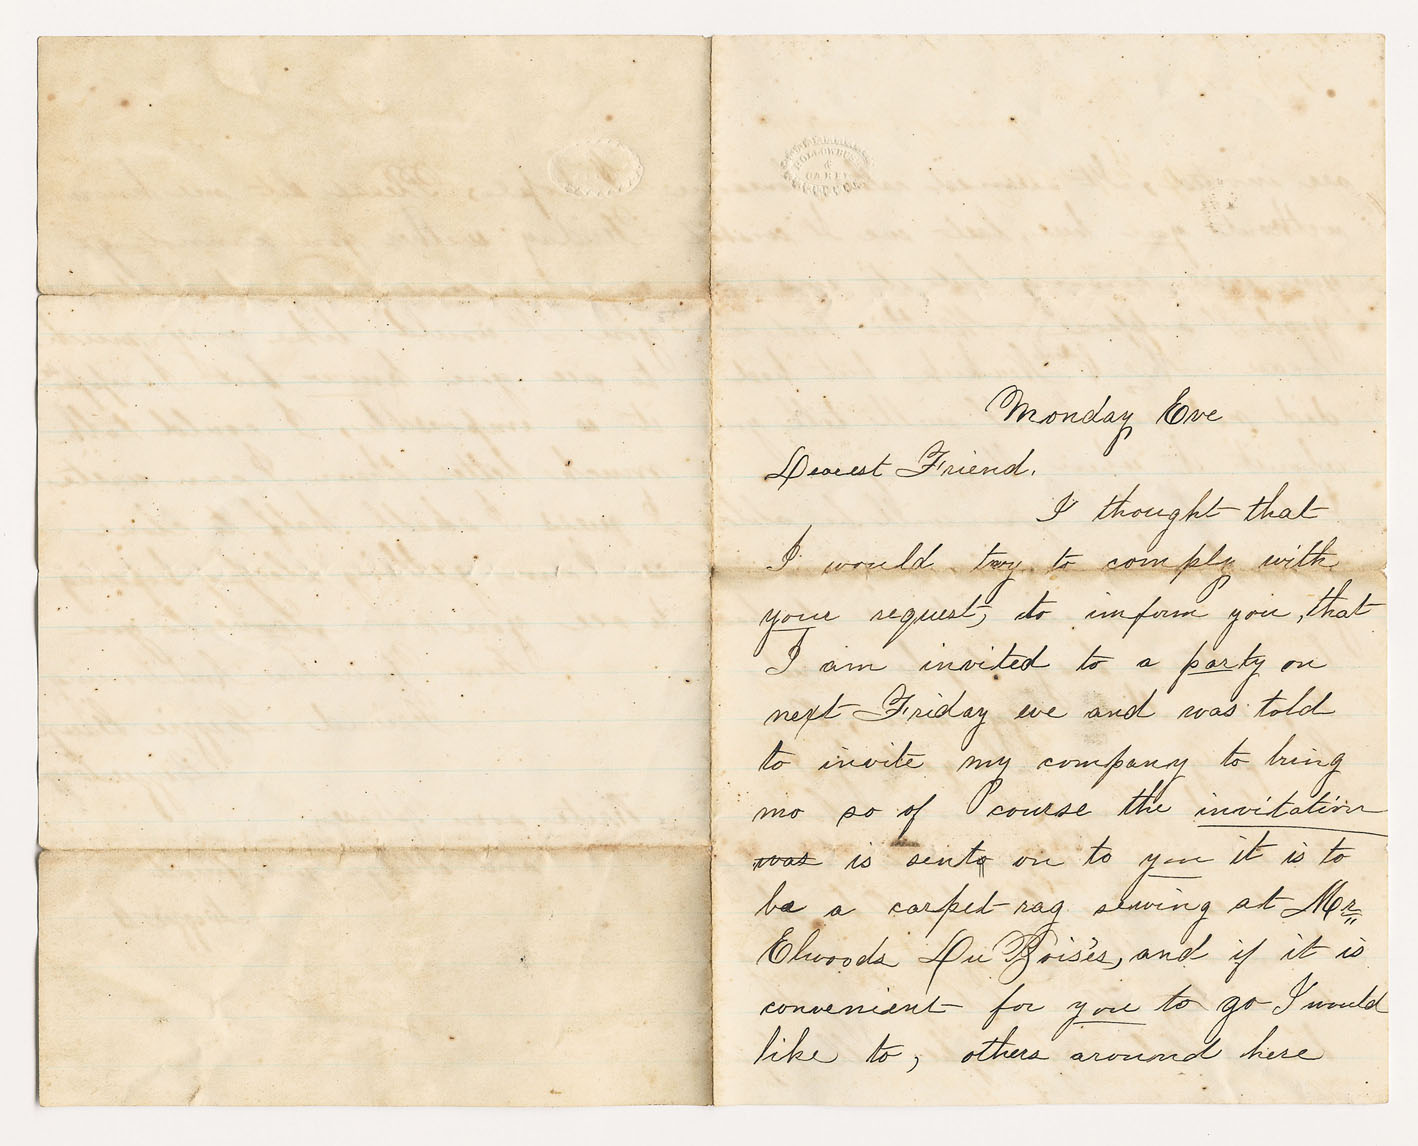 HOLLOWBUSH
&
CAREY
Monday Eve
Dearest Friend.
I thought that
I would try to comply with
your request, to inform you, that
I am invited to a party on
next Friday eve and was told
to invite my company to bring
mo so of course the invitation
was is sent on to you it is to
be a carpet rag sewing at Mr
Elwoods Du Bois's, and if it is
convenient for you to go I would
like to, others around here